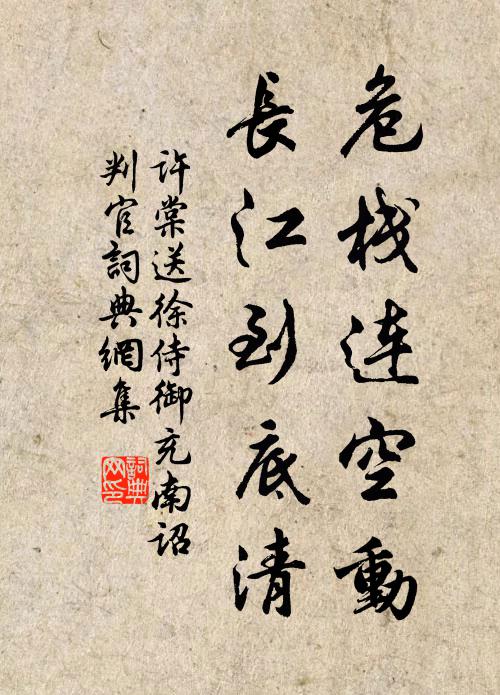 危栈连空動
長江到底清
許棠送徐侍御充南詔
判官詞典網集
詞典网印